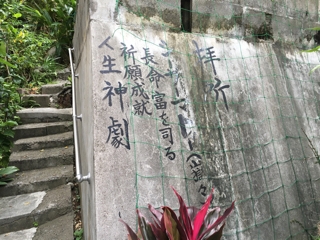 拝所
長命富を司る
祈願成就
人生神劇